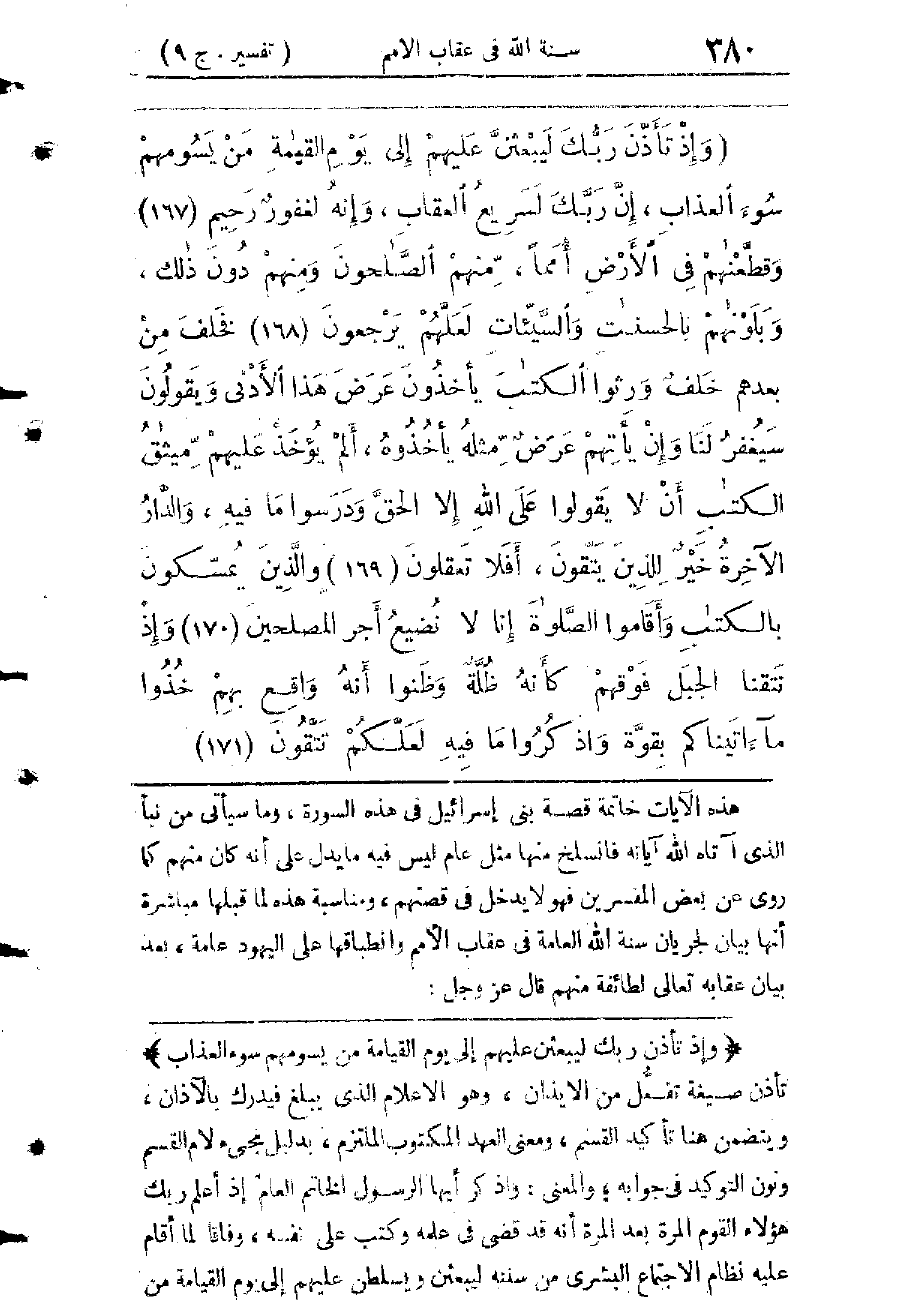 ٣٨٠ سنة الله فى عقاب الامم ( تفسير . ج ٩ )
( وَإِذْ تَأَذَّنَ رَبُّكَ لَيَبْعَثَنَّ عَلَيهِمْ إِلى يَوْمِ القيٰمةِ مَنْ يَسُومهمْ
سُوءَ العذابِ ، إنَّ رَبَّكَ لَسَرِيعُ العقابِ ، وَإِنهُ لغفورٌ رَحِيم (١٦٧)
وَقطَّعْنٰهُمْ فِى الأَرْضِ أُمَماً ، مِّنهمْ الصَّٰلحونَ وَمِنهمْ دُونَ ذٰلك ،
وَبَلَوْنٰهُمْ بالحسنٰت وَالسيِّئات لَعَلَّهُمْ يَرْجعونَ (١٦٨) فخَلفَ مِنْ
بعدهم خَلفٌ وَرِثوا الكتٰبَ يأخذُونَ عَرَضَ هَذا الأَدْنٰى وَيَقولُونَ
سَيُغفرُ لَنَا وَإِنْ يأْتِهمْ عَرَضٌ مِّثلهُ يأخُذُوهُ ، أَلمْ يُؤخَذْ عَليهمْ مِّيثٰقُ
الكتٰبِ أَنْ لا يَقولوا عَلَى اللهِ إلا الحقَّ وَدَرَسوا مَا فيهِ ، وَالدَّارُ
الآخِرةُ خَيْرٌ لِلذِينَ يَتَّقونَ ، أَفَلا تَعقلون (١٦٩) والَّذِينَ يُمسّكونَ
بالكتٰبِ وَأَقاموا الصَّلوٰةَ إنا لا نُضيعُ أجر المصلحين (١٧٠) وَإِذْ
نَتقنا الجبَل فَوْقهمْ كأَنهُ ظُلَّةٌ وَظَنوا أَنهُ وَاقِع بِهمْ خُذُوا
مآءَاتَيناكم بِقوَّة وَاذكُرُوا مَا فِيهِ لَعَلَّكُمْ تَتَّقُونَ (١٧١)
هذه الآيات خاتمة قصة بنى إسرائيل فى هذه السورة ، وما سيأتى من نبأ
الذى آتاه الله آياته فانسلخ منها مثل عام ليس فيه ما يدل على أنه كان منهم كما
روى عن بعض المفسرين فهو لا يدخل فى قصتهم ، ومناسبة هذه لما قبلها مباشرة
أنها بيان لجريان سنة الله العامة فى عقاب الأمم وانطباقها على اليهود عامة ، بعد
بيان عقابه تعالى لطائفة منهم قال عز وجل :
﴿ وإذ تأذن ربك ليبعثن عليهم إلى يوم القيامة من يسومهم سوء العذاب ﴾
تأذن صيغة تفعُّل من الايذان ، وهو الاعلام الذى يبلغ فيدرك بالآذان ،
ويتضمن هنا تأكيد القسم ، ومعنى العهد المكتوب الملتزم ، بدليل مجىء لام القسم
ونون التوكيد فى جوابه ؛ والمعنى : واذكر أيها الرسول الخاتم العام إذ أعلم ربك
هؤلاء القوم المرة بعد المرة أنه قد قضى فى علمه وكتب على نفسه ، وفاقا لما أقام
عليه نظام الاجتماع البشرى من سننه ليبعثن ويسلطن عليهم إلى يوم القيامة من